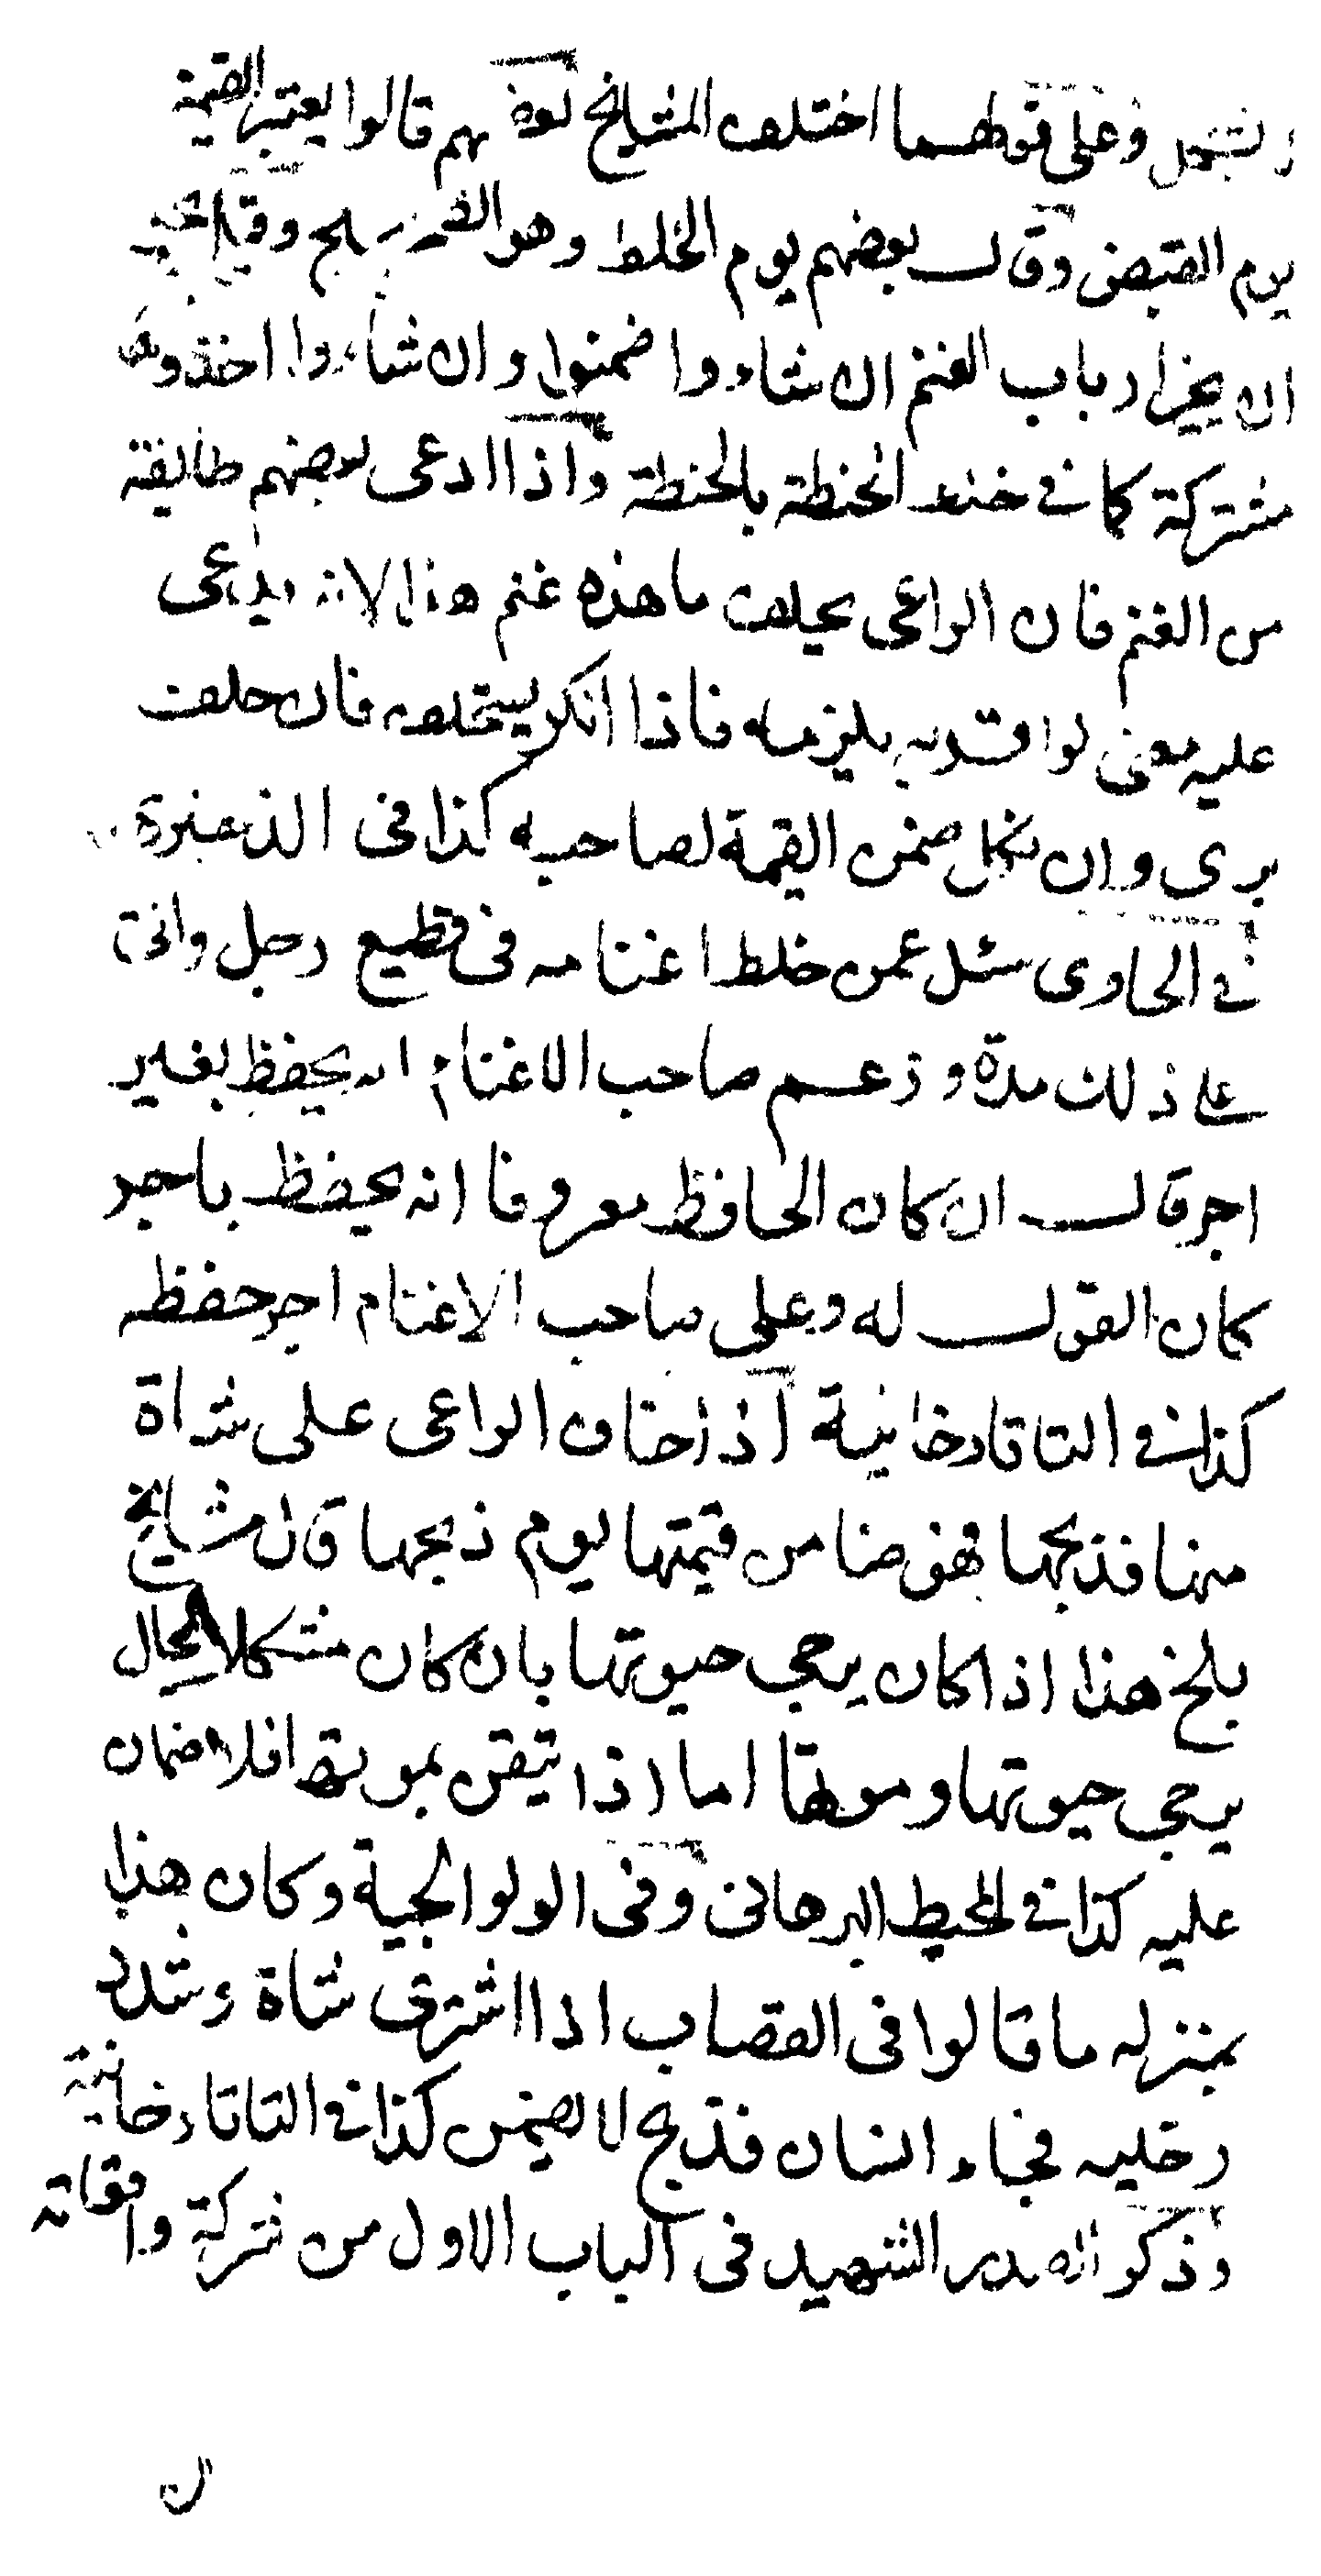 وعلى قولهما اختلف المشايخ بعضهم قالوا يعتبر القيمة
يوم القبض وقال بعضهم يوم الخلط وهو الصحيح وقيل
ان يخير ارباب الغنم ان شاءوا ضمنوا وان شاءوا اخذوها
مشتركة كما في خلط الحنطة بالحنطة واذا ادعى بعضهم طائفة
من الغنم فان الراعى يحلف ما هذه غنم هذا لانه يدعى
عليه معنى لو اقر به يلزمه فاذا انكر يستحلف فان حلف
برى وان نكل ضمن القيمة لصاحبه كذا فى الذخيرة
في الحاوى سئل عمن خلط اغنامه فى قطيع رجل واتى
على ذلك مدة وزعم صاحب الاغنام انه يحفظ بغير
اجر قال ان كان الحافظ معروفا انه يحفظ باجر
كان القول له وعلى صاحب الاغنام اجر حفظه
كذا في التاتارخانية اذا خاف الراعى على شاة
منها فذبحها فهو ضامن قيمتها يوم ذبحها قال مشايخ
بلخ هذا اذا كان يرجى حيوتها بان كان مشكل الحال
يرجى حيوتها وموتها اما اذا تيقن بموتها فلا ضمان
عليه كذا في المحيط البرهانى وفى الولوالجية وكان هذا
بمنزله ما قالوا فى القصاب اذا اشترى شاة وشدد
رجليه فجاء انسان فذبح لا يضمن كذا في التاتارخانية
وذكر الصدر الشهيد فى الباب الاول من شركة واقعاته